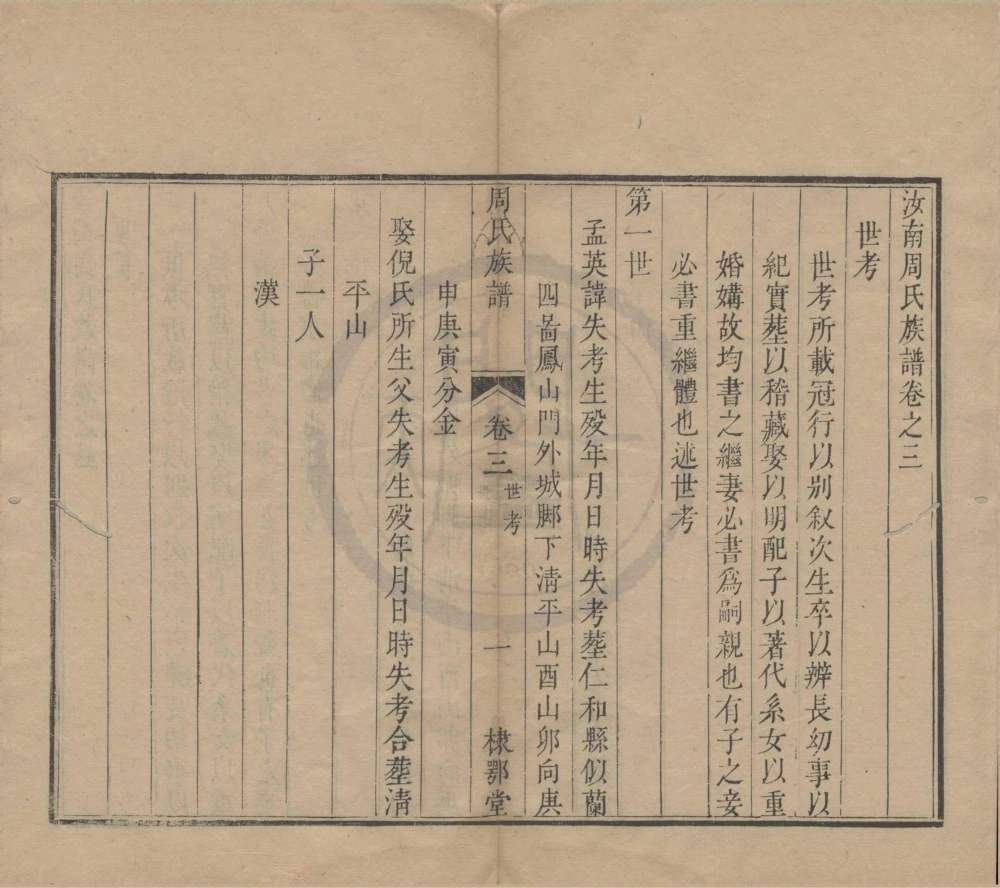 汝南周氏族譜卷之三
世考
世考所載冠行以别叙次生卒以辨長幼事以
紀實塟以稽藏娶以明配子以著代系女以重
婚媾故均書之繼妻必書爲嗣親也有子之妾
必書重繼體也述世考
第一世
孟英諱失考生殁年月日時失考塟仁和縣似蘭
四啚鳳山門外城脚下淸平山酉山卯向庚
周氏族譜
卷三
世考
一
棣鄂堂
申庚寅分金
娶倪氏所生父失考生殁年月日時失考合塟淸
平山
子一人
漢